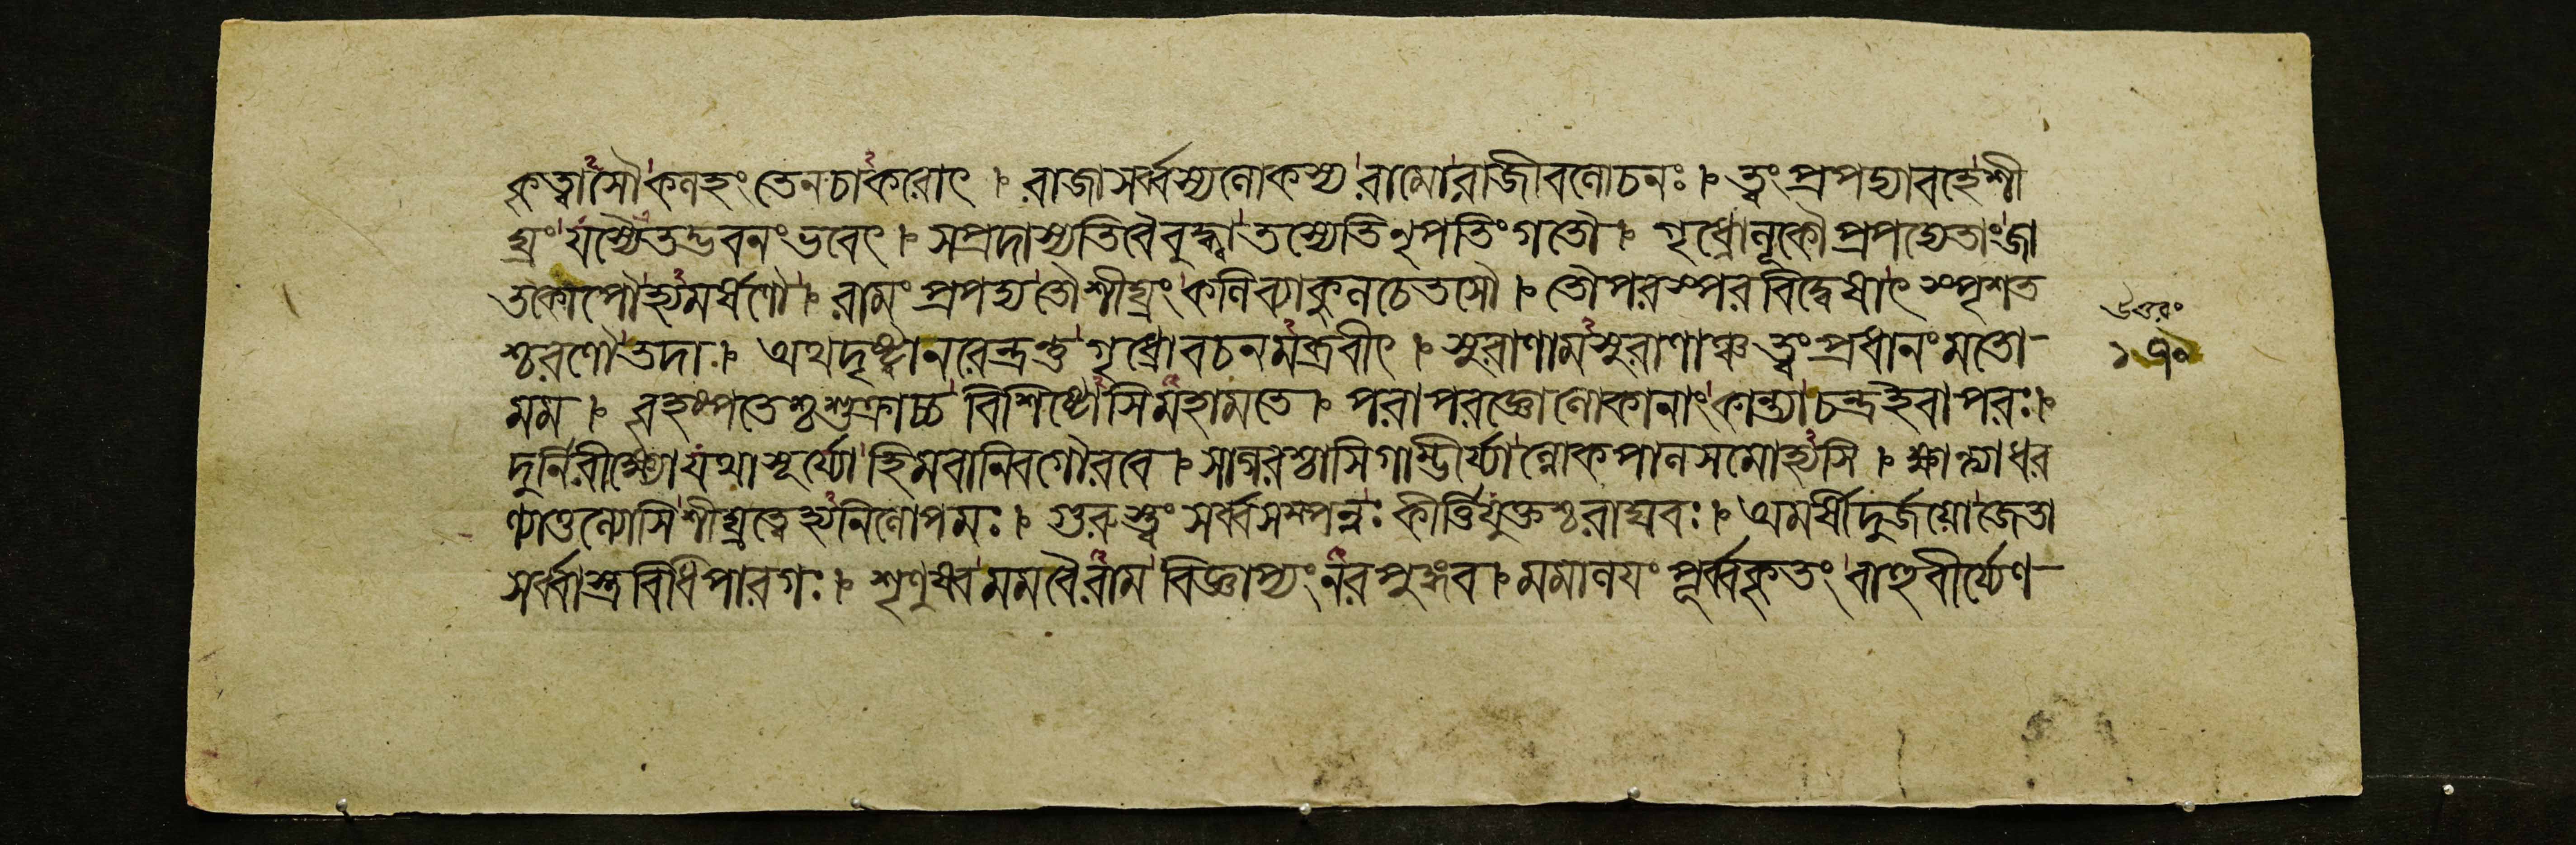 কৃত্বাসৌকলহংতেনচাকরোৎ । রাজাসর্ব্বস্যলোকস্য রামোরাজীবলোচনঃ । ত্বংপ্রপদ্যাবহেশী
ঘ্রং যস্যৈতদ্ভবনংভবেৎ । সপ্রদাস্যতিবৈবুদ্ধ্বাতস্যেতিনৃপতিংগতৌ । গৃধ্রোলূকৌপ্রপদ্যেতাংজা
তকোপৌহ্যমর্ষণৌ । রামংপ্রপদ্যতৌশীঘ্রংকলিব্যাকুলচেতসৌ । তৌপরস্পরবিদ্বেষাৎস্পৃশত
শ্চরণৌতদা । অথদৃষ্ট্বানরেন্দ্রন্তু গৃধ্রোবচনমব্রবীৎ । সুরাণামসুরাণাঞ্চত্বংপ্রধানংমতো
মম । বৃহস্পতেশ্চশুক্রাচ্চ বিশিষ্টোসিমহামতে । পরাপরজ্ঞোলোকানাংকান্ত্যাচন্দ্রইবাপরঃ।
দুর্নিরীক্ষ্যোযথাসূর্য্যোহিমবানিবগৌরবে । সাগরশ্চাসিগাম্ভীর্য্যাল্লোকপালসমোহ্যসি । ক্ষান্ত্যাধর
ণ্যাতুল্যোসিশীঘ্রত্বেহ্যনিলোপমঃ । গুরুস্ত্বং সর্ব্বসম্পন্নঃ কীর্ত্তিযুক্তশ্চরাঘবঃ । অমর্ষীদুর্জয়োজেতা
সর্ব্বাস্ত্রবিধিপারগঃ । শৃণুষ্বমমবৈরাম বিজ্ঞাপ্যংনরপুঙ্গব । মমালয়ং পূর্ব্বকৃতংবাহুবীর্য্যেণ
উত্তরং
১৭০